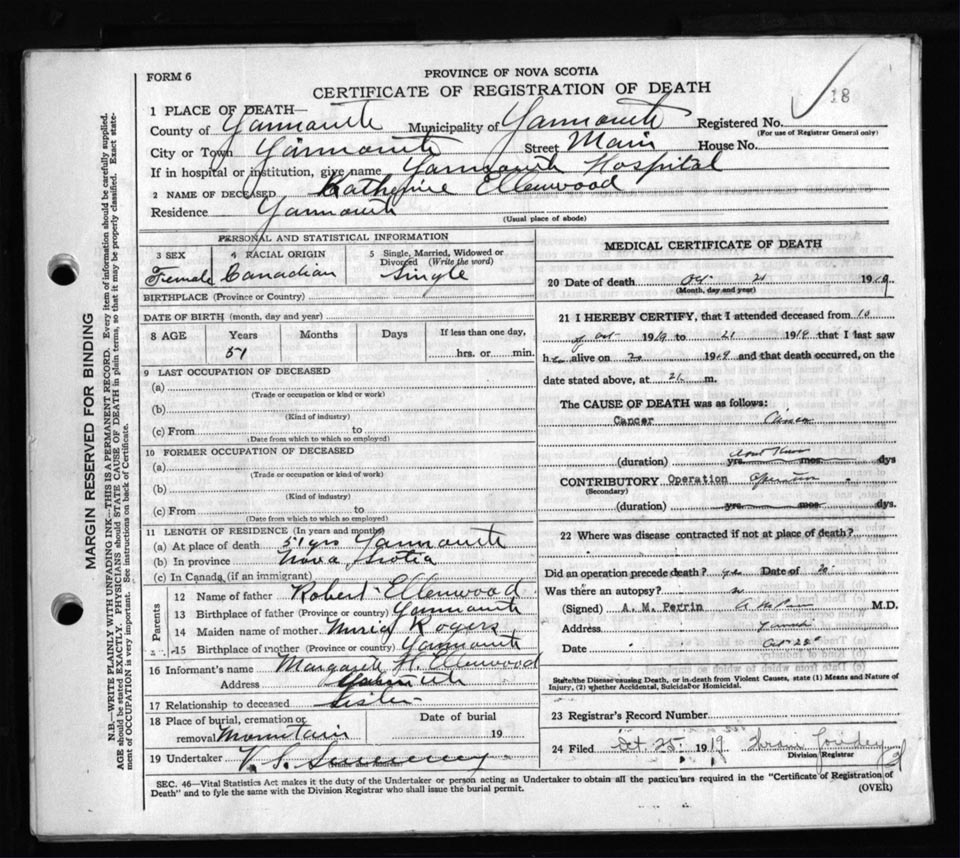 FORM 6
PROVINCE OF NOVA SCOTIA
CERTIFICATE OF REGISTRATION OF DEATH
18
1 PLACE OF DEATH—
County of Yarmouth Municipality of Yarmouth Registered No.
(For use of Registrar General only)
City or Town Yarmouth Street Main House No.
If in hospital or institution, give name Yarmouth Hospital
2 NAME OF DECEASED Katherine Ellenwood
Residence Yarmouth
(Usual place of abode)
PERSONAL AND STATISTICAL INFORMATION
3 SEX 4 RACIAL ORIGIN 5 Single, Married, Widowed or Divorced (Write the word)
Female Canadian Single
BIRTHPLACE (Province or Country)
DATE OF BIRTH (month, day and year)
8 AGE Years Months Days If less than one day,
51 hrs. or min.
9 LAST OCCUPATION OF DECEASED
(a)
(Trade or occupation or kind or work)
(b)
(Kind of industry)
(c) From to
(Date from which to which so employed)
10 FORMER OCCUPATION OF DECEASED
(a)
(Trade or occupation or kind of work)
(b)
(Kind of industry)
(c) From to
(Date from which to which so employed)
11 LENGTH OF RESIDENCE (In years and months)
(a) At place of death 51 yrs Yarmouth
(b) In province Nova Scotia
(c) In Canada (if an immigrant)
Parents
12 Name of father Robert Ellenwood
13 Birthplace of father (Province or country) Yarmouth
14 Maiden name of mother Rogers
15 Birthplace of mother (Province or country) Yarmouth
16 Informant's name Margaret H. Ellenwood
Address Yarmouth
17 Relationship to deceased Sister
18 Place of burial, cremation or removal Mountain Date of burial 19
19 Undertaker V. S. Sweeney
MEDICAL CERTIFICATE OF DEATH
20 Date of death Oct 21 1919
(Month, day and year)
21 I HEREBY CERTIFY, that I attended deceased from 10
of Oct 1919 to 21 1919 that I last saw
her alive on 20 1919 and that death occurred, on the
date stated above, at m.
The CAUSE OF DEATH was as follows:
Cancer Cancer
(duration) yrs mos dys
CONTRIBUTORY Operation Operation
(Secondary)
(duration) yrs mos dys.
22 Where was disease contracted if not at place of death?
Did an operation precede death? yes Date of 20
Was there an autopsy? no
(Signed) A. M. Perrin A M Perrin M.D.
Address Yarmouth
Date Oct
State the Disease causing Death, or in-death from Violent Causes, state (1) Means and Nature of
Injury, (2) whether Accidental, Suicidal or Homicidal.
23 Registrar's Record Number
24 Filed Oct 25 1919
Division Registrar
SEC. 46—Vital Statistics Act makes it the duty of the Undertaker or person acting as Undertaker to obtain all the particulars required in the "Certificate of Registration of
Death" and to fyle the same with the Division Registrar who shall issue the burial permit.
(OVER)
MARGIN RESERVED FOR BINDING
N.B.—WRITE PLAINLY WITH UNFADING INK—THIS IS A PERMANENT RECORD. Every item of information should be carefully supplied.
AGE should be stated EXACTLY. PHYSICIANS should STATE CAUSE OF DEATH in plain terms, so that it may be properly classified. Exact statement of OCCUPATION is very important. See instructions on back of Certificate.